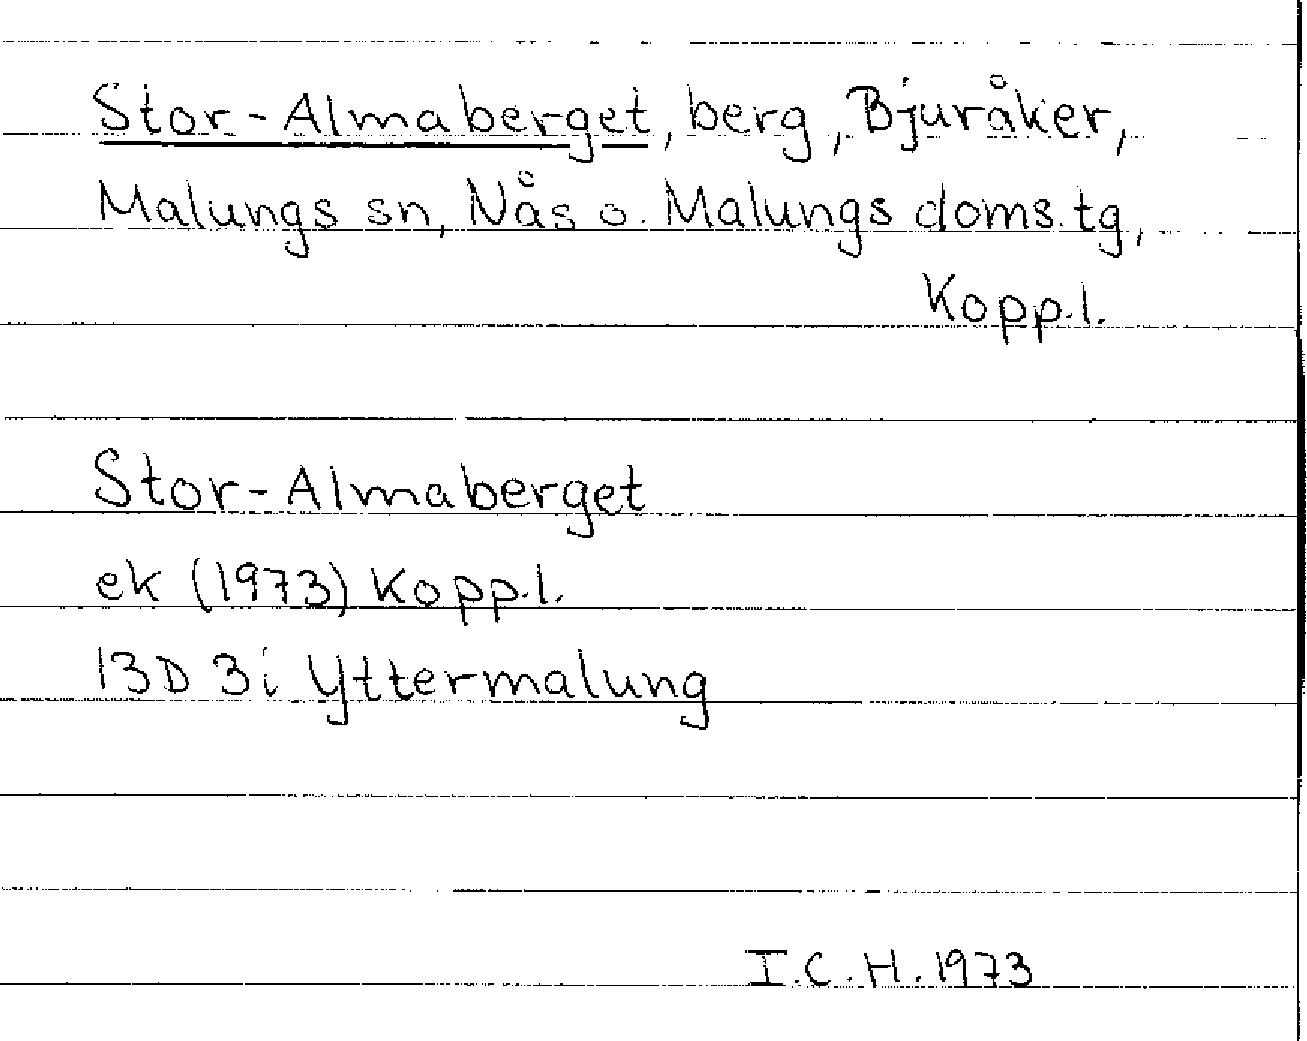 Stor-Almaberget, berg, Bjuråker,
Malungs sn, Nås o. Malungs doms.tg,
Kopp.l.
Stor-Almaberget
ek (1973) Kopp.l.
13D 3i Yttermalung
I.C.H. 1973